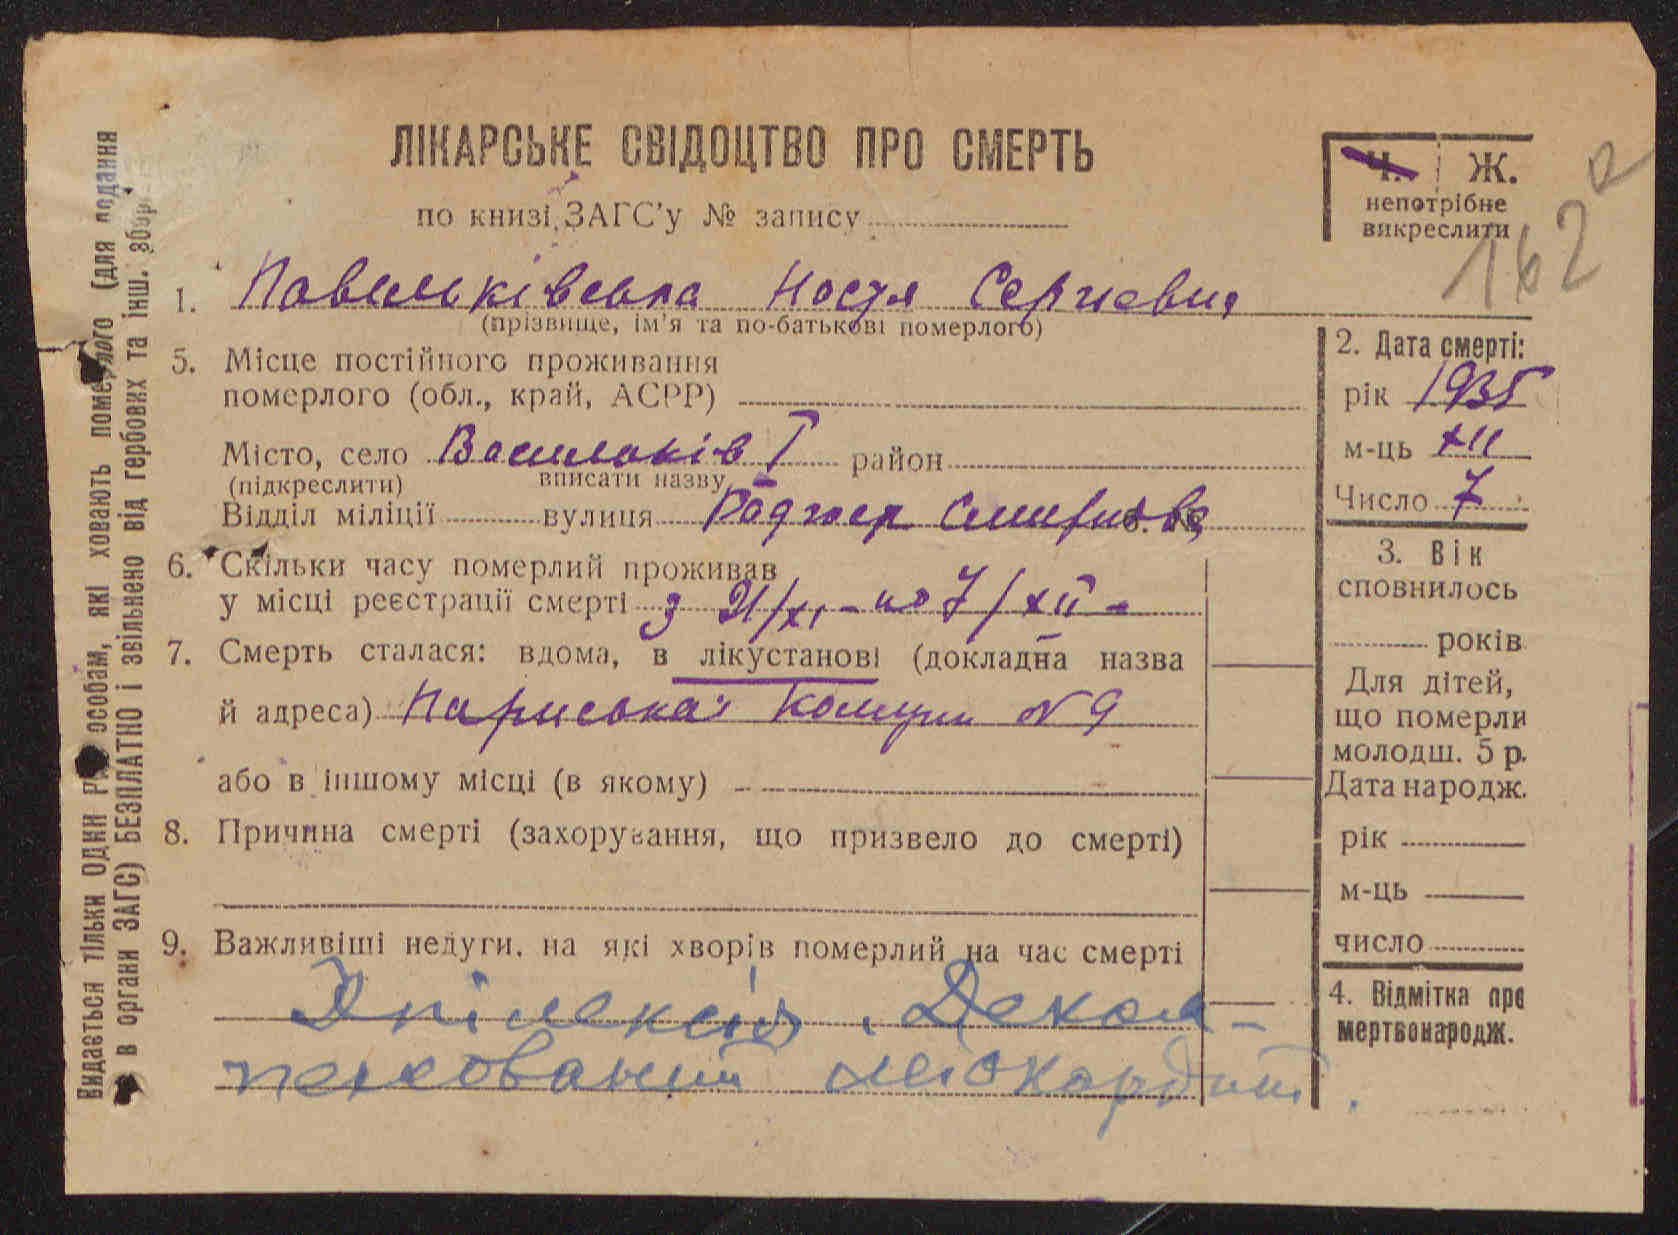 ЛІКАРСЬКЕ СВІДОЦТВО ПРО СМЕРТЬ
по книзі ЗАГС'у № запису
Ч. Ж.
непотрібне
викреслити
162
1. Настя Сергиевна
(прізвище, ім'я та по-батькові померлого)
2. Дата смерті:
рік 1935
м-ць XII
Число 7
3. Вік
сповнилось
років
Для дітей,
що померли
молодш. 5 р.
Дата народж.
рік
м-ць
число
4. Відмітка про
мертвонародж.
5. Місце постійного проживання
померлого (обл., край, АСРР)
Місто, село Васильків I район
(підкреслити) вписати назву
Відділ міліції вулиця
6. Скільки часу померлий проживав
у місці реєстрації смерті з 21/XI - по 7/XII -
7. Смерть сталася: вдома, в лікустанові (докладна назва
й адреса) Паризька Комуни № 9
або в іншому місці (в якому)
8. Причина смерті (захорування, що призвело до смерті)
9. Важливіші недуги, на які хворів померлий на час смерті
Епілексія. Деком-
пенсований міокардит.
Видається тільки один раз особам, які ховають померлого (для подання
в органи ЗАГС) БЕЗПЛАТНО і звільнено від гербових та інш. збор